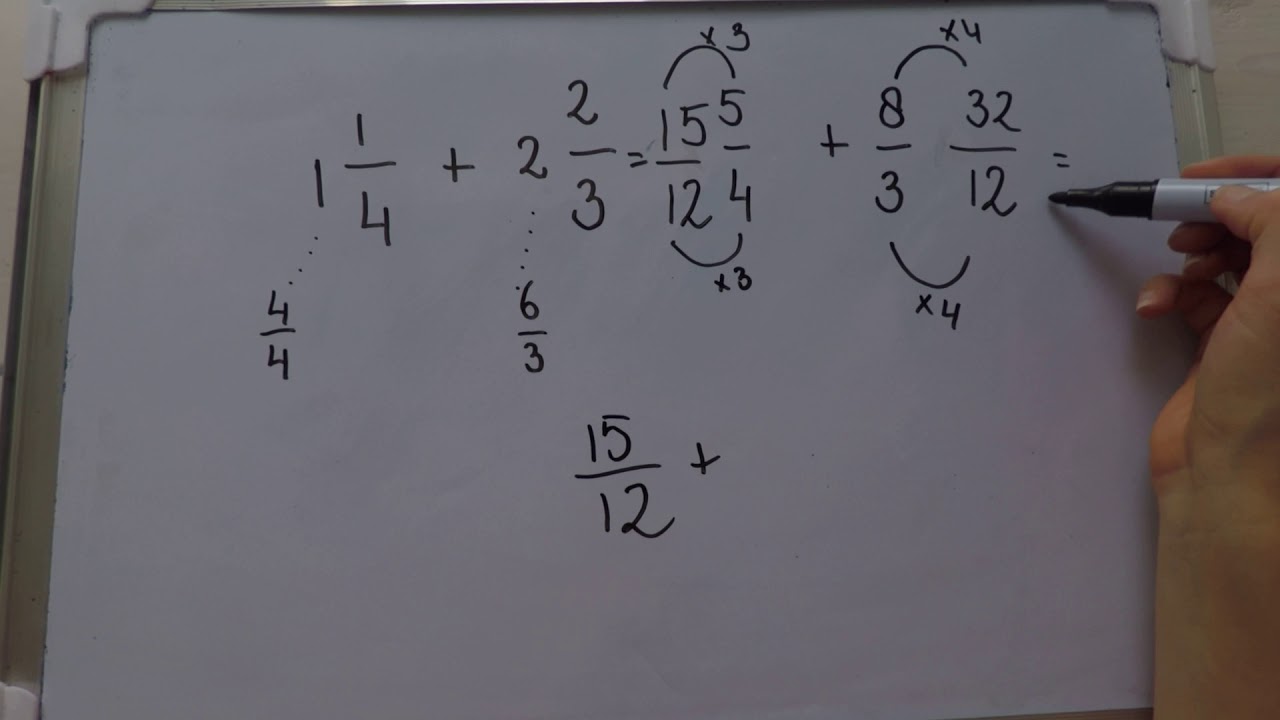 ×3 ×4
1 1/4 + 2 2/3 = 15/12 5/4 + 8/3 32/12 =
×3 ×4
4/4 6/3
15/12 +